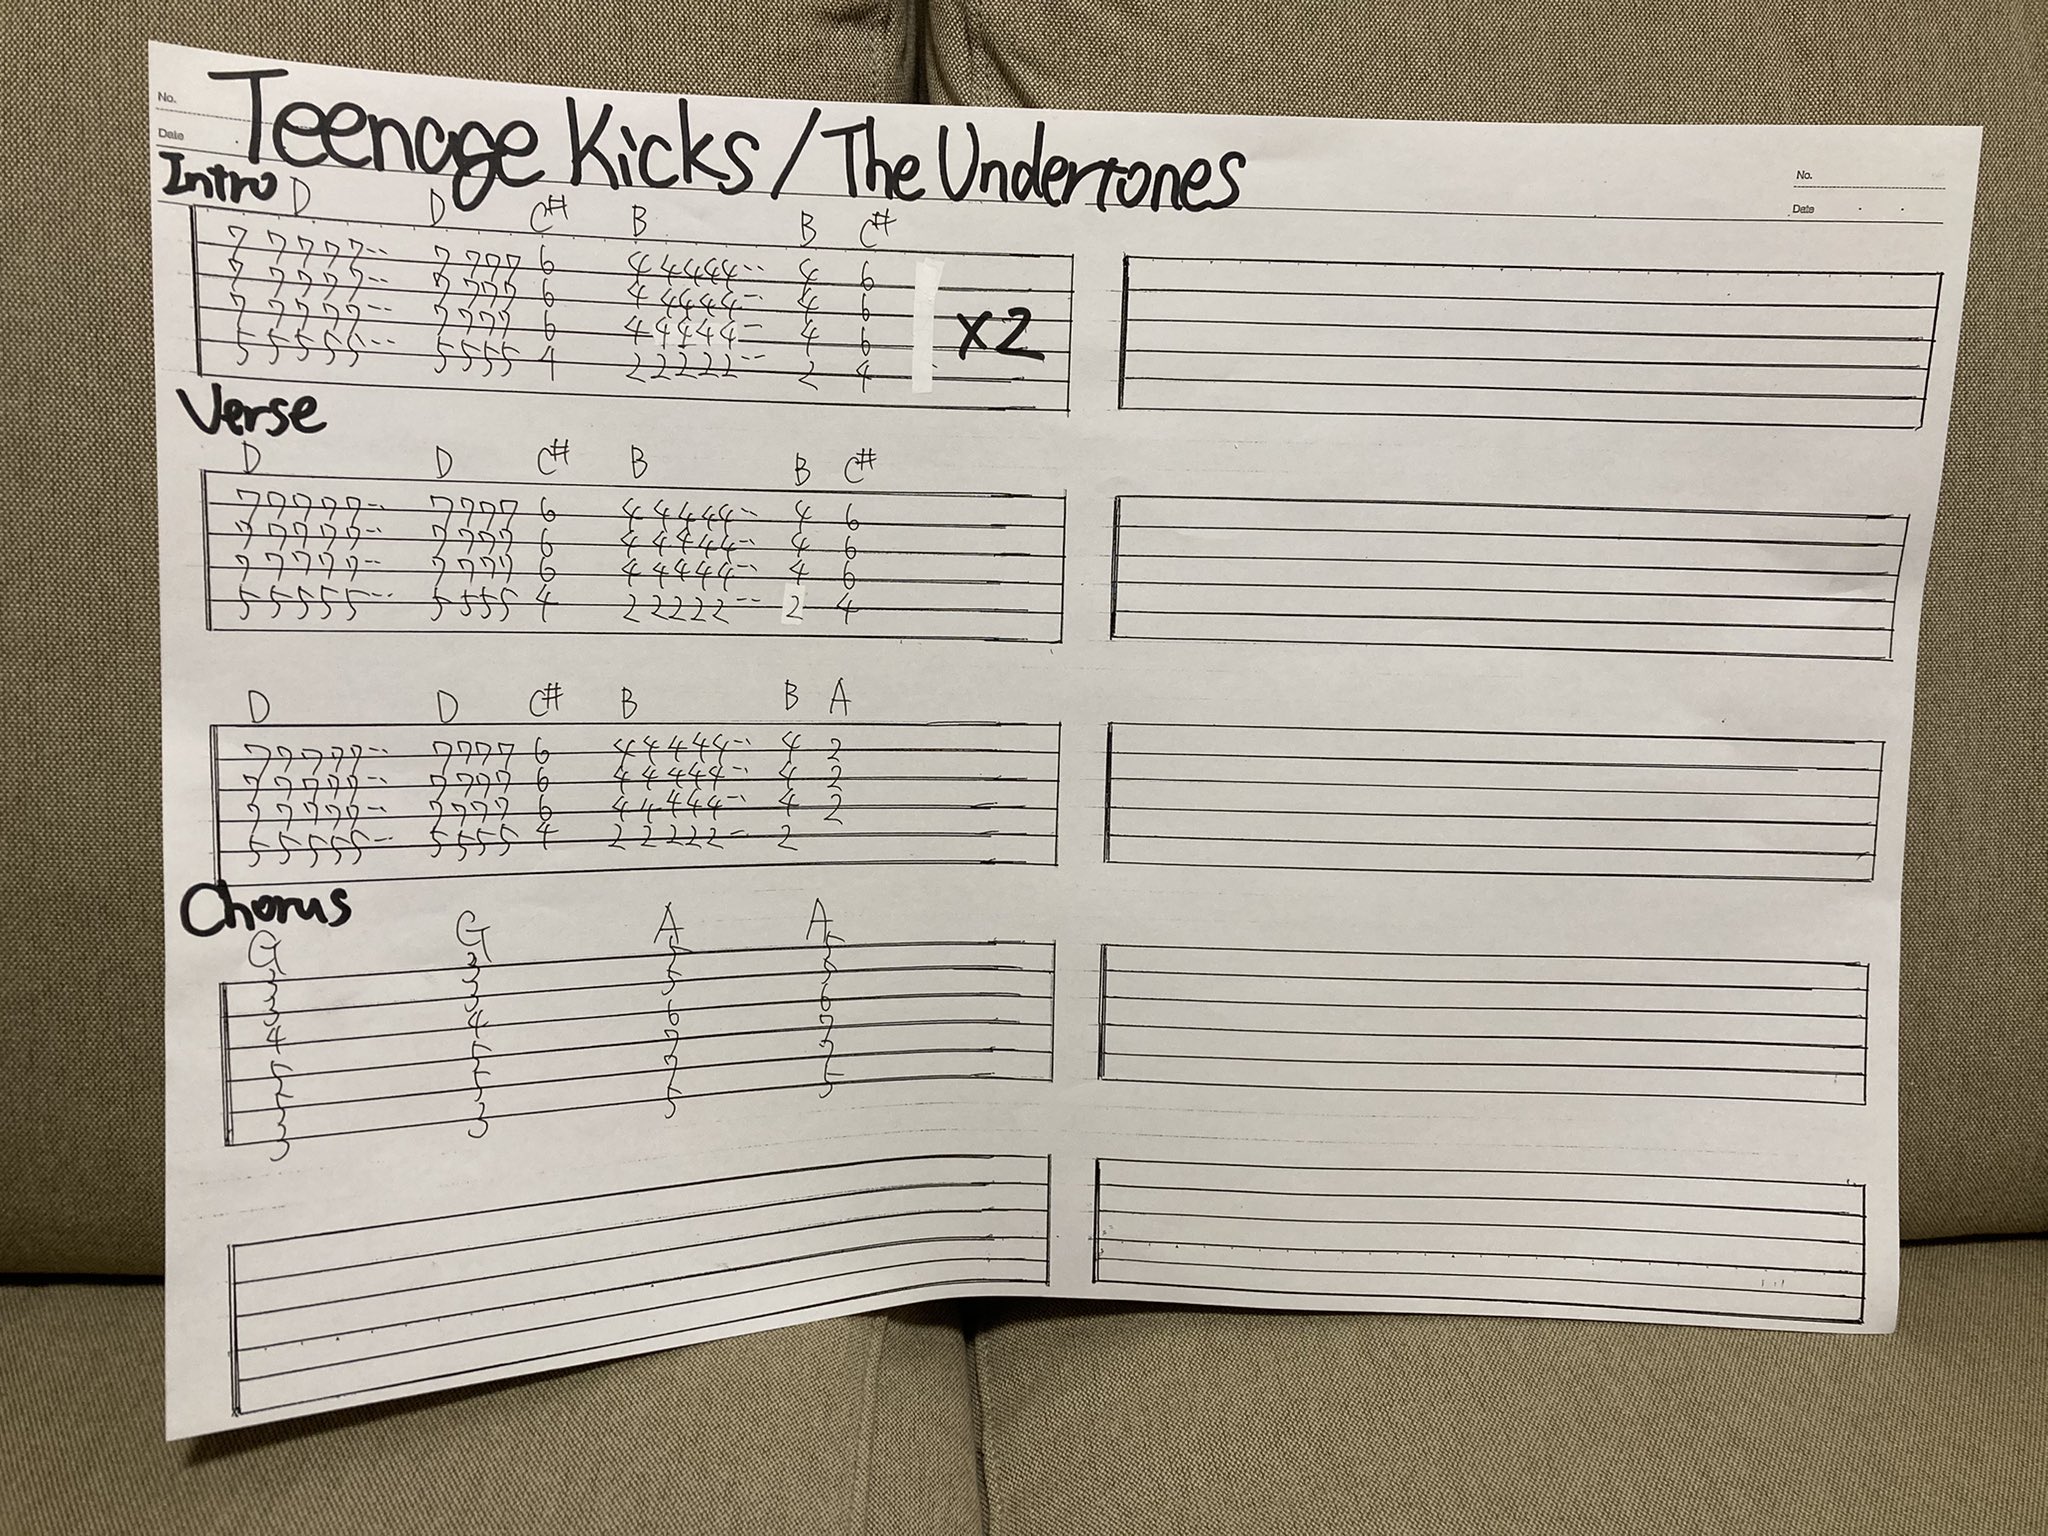 No.
Date
Teenage Kicks / The Undertones
No.
Date
Intro D D C# B B C#
7 7 7 7 7 -- 7 7 7 7 6 4 4 4 4 4 -- 4 6
7 7 7 7 7 -- 7 7 7 7 6 4 4 4 4 4 -- 4 6
7 7 7 7 7 -- 7 7 7 7 6 4 4 4 4 4 -- 4 6
5 5 5 5 5 -- 5 5 5 5 4 2 2 2 2 2 -- 2 4
x2
Verse
D D C# B B C#
7 7 7 7 7 -- 7 7 7 7 6 4 4 4 4 4 -- 4 6
7 7 7 7 7 -- 7 7 7 7 6 4 4 4 4 4 -- 4 6
7 7 7 7 7 -- 7 7 7 7 6 4 4 4 4 4 -- 4 6
5 5 5 5 5 -- 5 5 5 5 4 2 2 2 2 2 -- 2 4
D D C# B B A
7 7 7 7 7 -- 7 7 7 7 6 4 4 4 4 4 -- 4 2
7 7 7 7 7 -- 7 7 7 7 6 4 4 4 4 4 -- 4 2
7 7 7 7 7 -- 7 7 7 7 6 4 4 4 4 4 -- 4 2
5 5 5 5 5 -- 5 5 5 5 4 2 2 2 2 2 -- 2
Chorus
G G A A
3 3 5 5
3 3 5 5
4 4 6 6
5 5 7 7
5 5 7 7
3 3 5 5